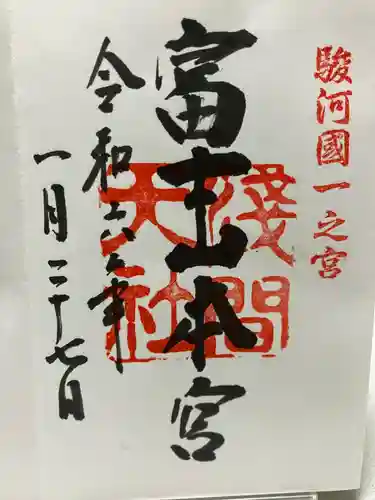 駿河國一之宮
富士山本宮
淺間大社
令和六年
一月二十七日